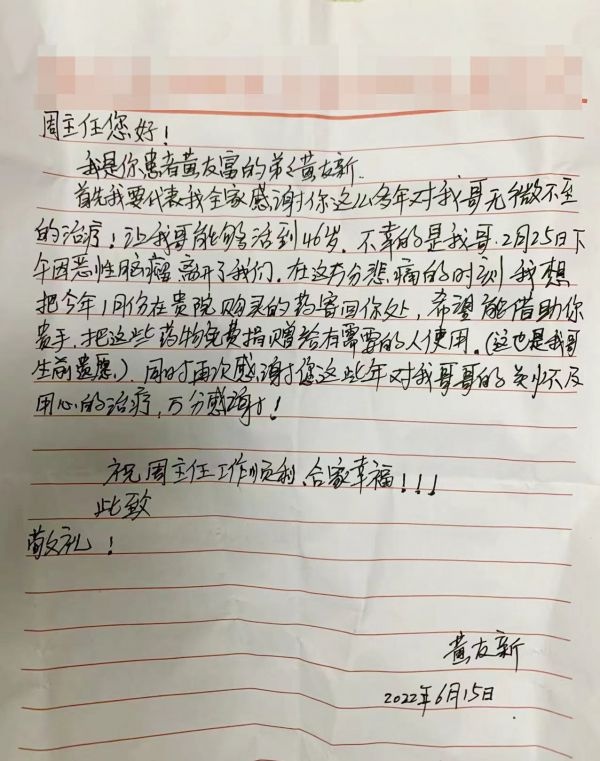 周主任您好！
我是你患者黄友富的弟弟黄友新.
首先我要代表我全家感谢你这么多年对我哥无微不至
的治疗！让我哥能够活到46岁. 不幸的是我哥.2月25日下
午因恶性脑瘤离开了我们. 在这万分悲痛的时刻我想
把今年1月份在贵院购买的药寄回你处，希望能借助你
贵手，把这些药物免费捐赠给有需要的人使用.(这也是我哥
生前遗愿.) 同时再次感谢您这些年对我哥哥的关怀及
用心的治疗，万分感谢！
祝周主任工作顺利，合家幸福！！！
此致
敬礼！
黄友新
2022年6月15日